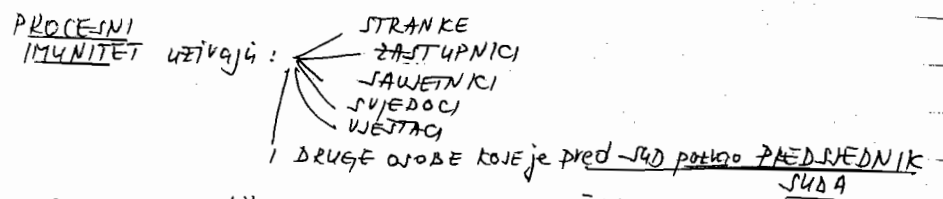 PROCESNI
IMUNITET uživaju :
STRANKE
ZASTUPNICI
SAVJETNICI
SVJEDOCI
VJEŠTACI
I DRUGE OSOBE KOJE je pred SUD pozvao PREDSJEDNIK
SUDA